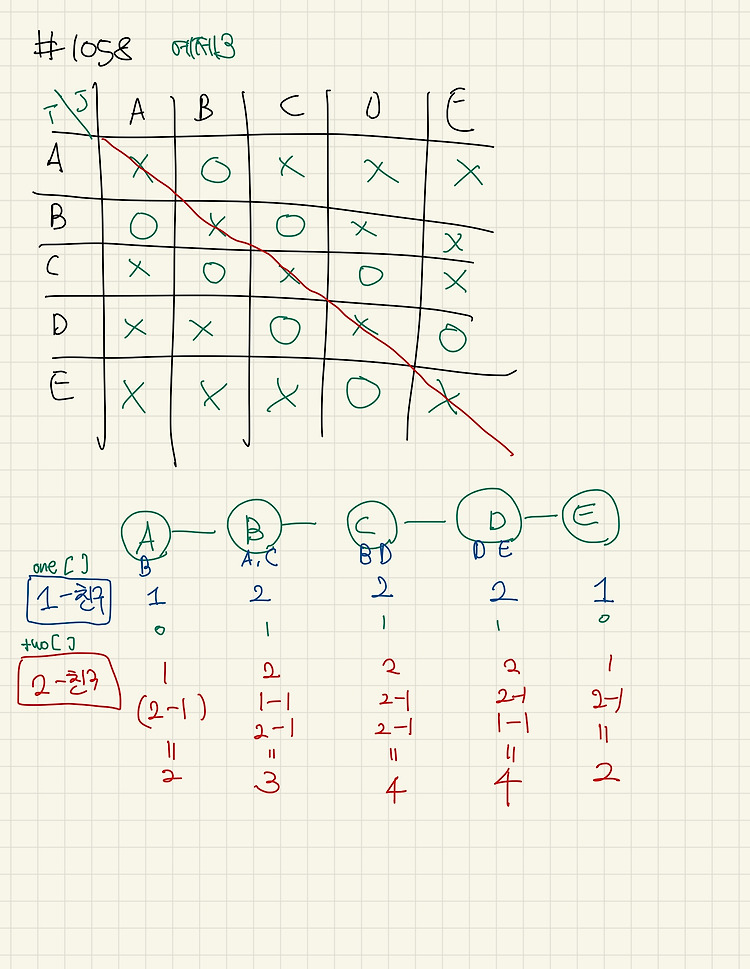 #1058
I J A B C D E
A X O X X X
B O X O X X
C X O X O X
D X X O X O
E X X X O X
A B C D E
B A, C B D D E
one [ ]
1-친구 1 2 2 2 1
0 1 1 1 0
two [ ]
2-친구 1 2 2 2 1
(2-1) 1-1 2-1 2-1 2-1
2-1 2-1 1-1
= = = = =
2 3 4 4 2